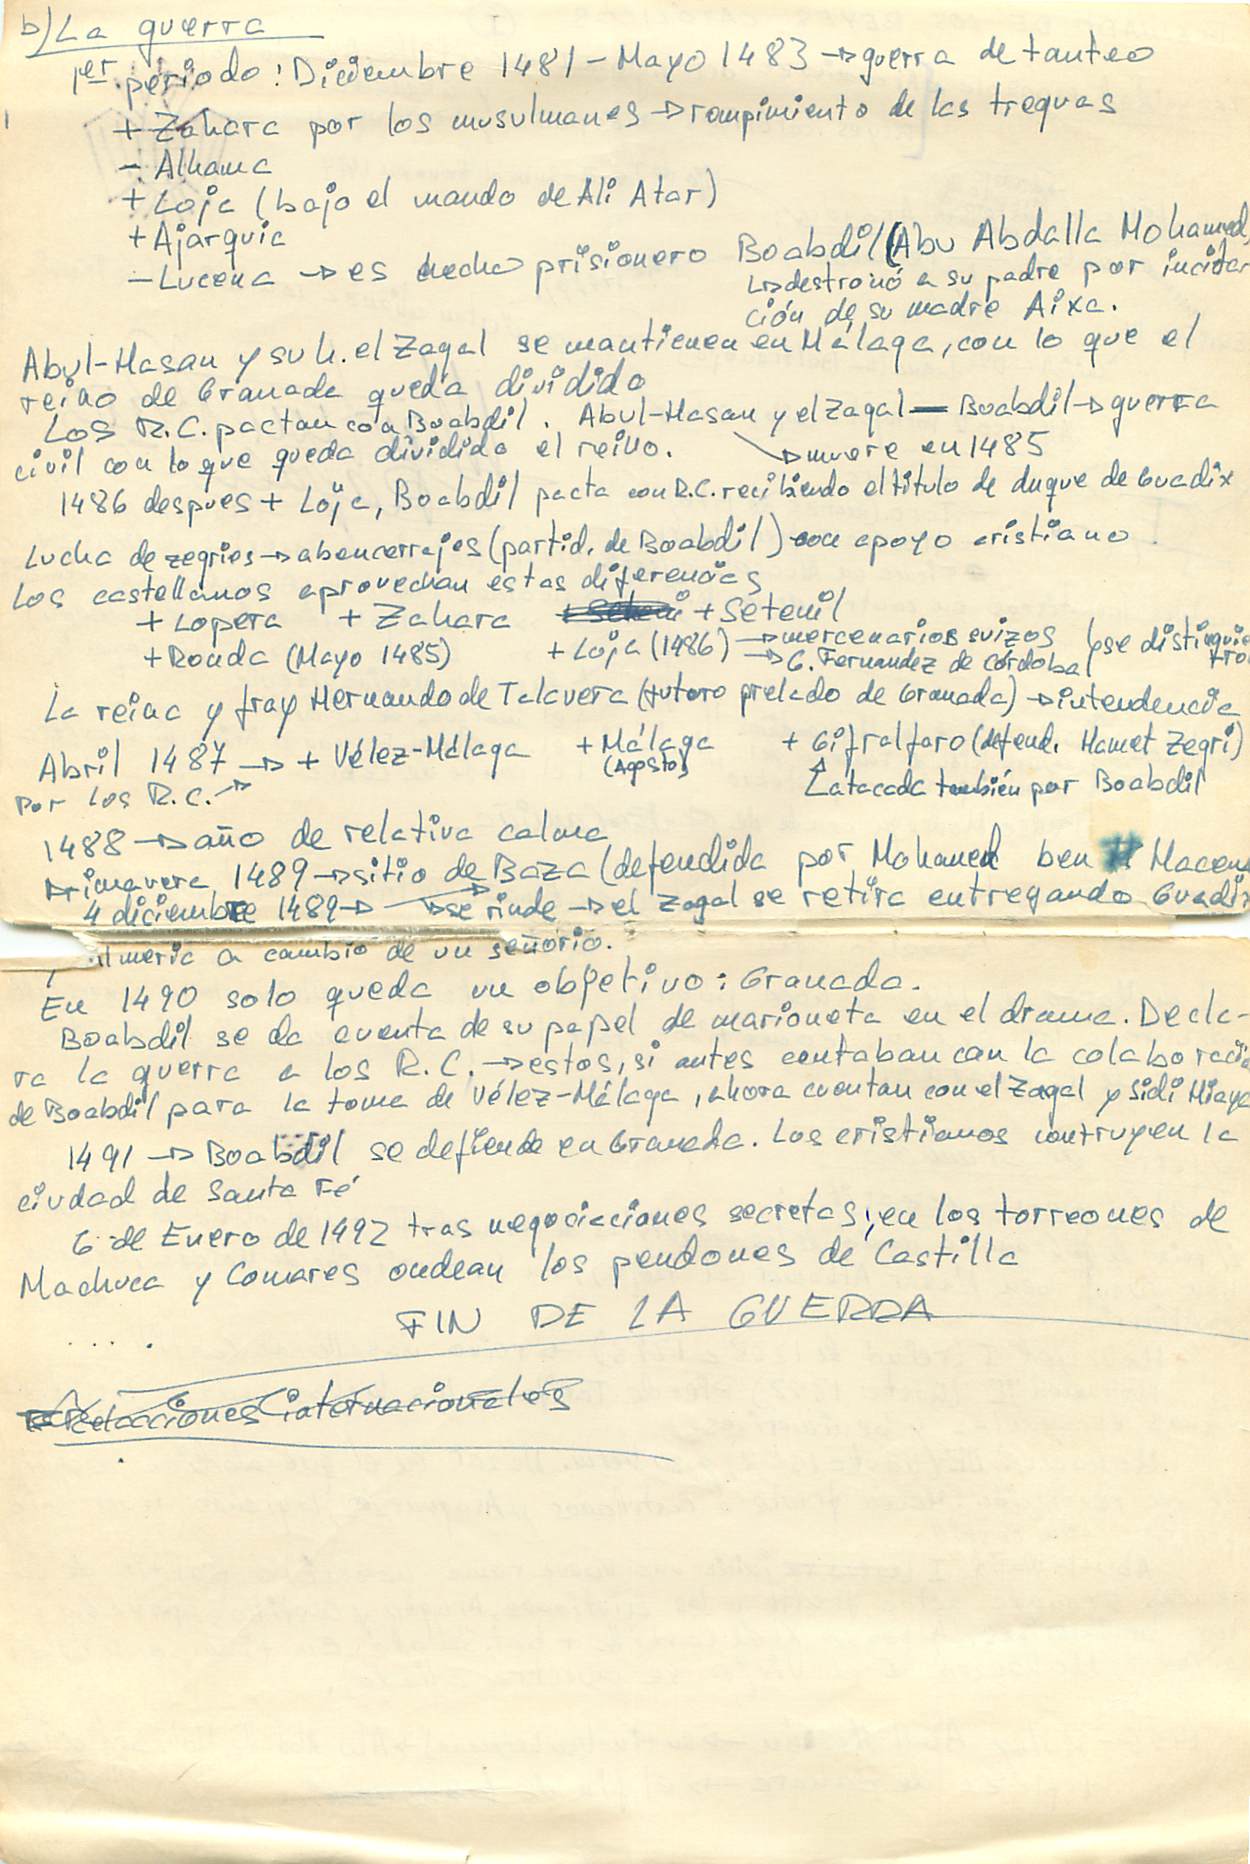 b) La guerra
1er periodo: Diciembre 1481 - Mayo 1483 → guerra de tanteo
+ Zahara por los musulmanes → rompimiento de las treguas
- Alhama
+ Loja (bajo el mando de Ali Atar)
+ Ajarquia
- Lucena → es hecho prisionero Boabdil (Abu Abdalla Mohamed,
↳ destronó a su padre por incitar
ción de su madre Aixa.
Abul-Hasan y su h. el Zagal se mantienen en Málaga, con lo que el
reino de Granada queda dividido
Los R.C. pactan con Boabdil. Abul-Hasan y el Zagal — Boabdil → guerra
civil con lo que queda dividido el reino. → muere en 1485
1486 despues + Loja, Boabdil pacta con R.C. recibiendo el titulo de duque de Guadix
Lucha de zegries → abencerrajes (partid. de Boabdil) con apoyo cristiano.
Los castellanos aprovechan estas diferencias
+ Lopera + Zahara + Setenil
+ Ronda (Mayo 1485) + Loja (1486) → mercenarios suizos (se distinguie
→ G. Fernandez de córdoba tro
La reina y fray Hernando de Talavera (futuro prelado de Granada) → intendencia
Abril 1487 → + Vélez-Málaga + Málaga + Gifralfaro (defend. Hamet Zegri)
(Agosto)
Por los R.C. → atacada también por Boabdil
1488 → año de relativa calma
Primavera 1489 → sitio de Baza (defendida por Mohamed ben Hacen
4 diciembre 1489 → se rinde → el Zagal se retira entregando Guadix
y Almeria a cambio de un señorio.
En 1490 solo queda un objetivo: Granada.
Boabdil se da cuenta de su papel de marioneta en el drama. Decla-
ra la guerra a los R.C. → estos, si antes contaban con la colaboració
de Boabdil para la toma de Vélez-Málaga, ahora cuentan con el Zagal y Sidi Hiaya
1491 → Boabdil se defiende en Granada. Los cristianos contruyen la
ciudad de Santa Fé
6 de Enero de 1492 tras negociaciones secretas, en los torreones de
Machuca y Comares ondean los pendones de Castilla
FIN DE LA GUERRA
Relacciones internacionales